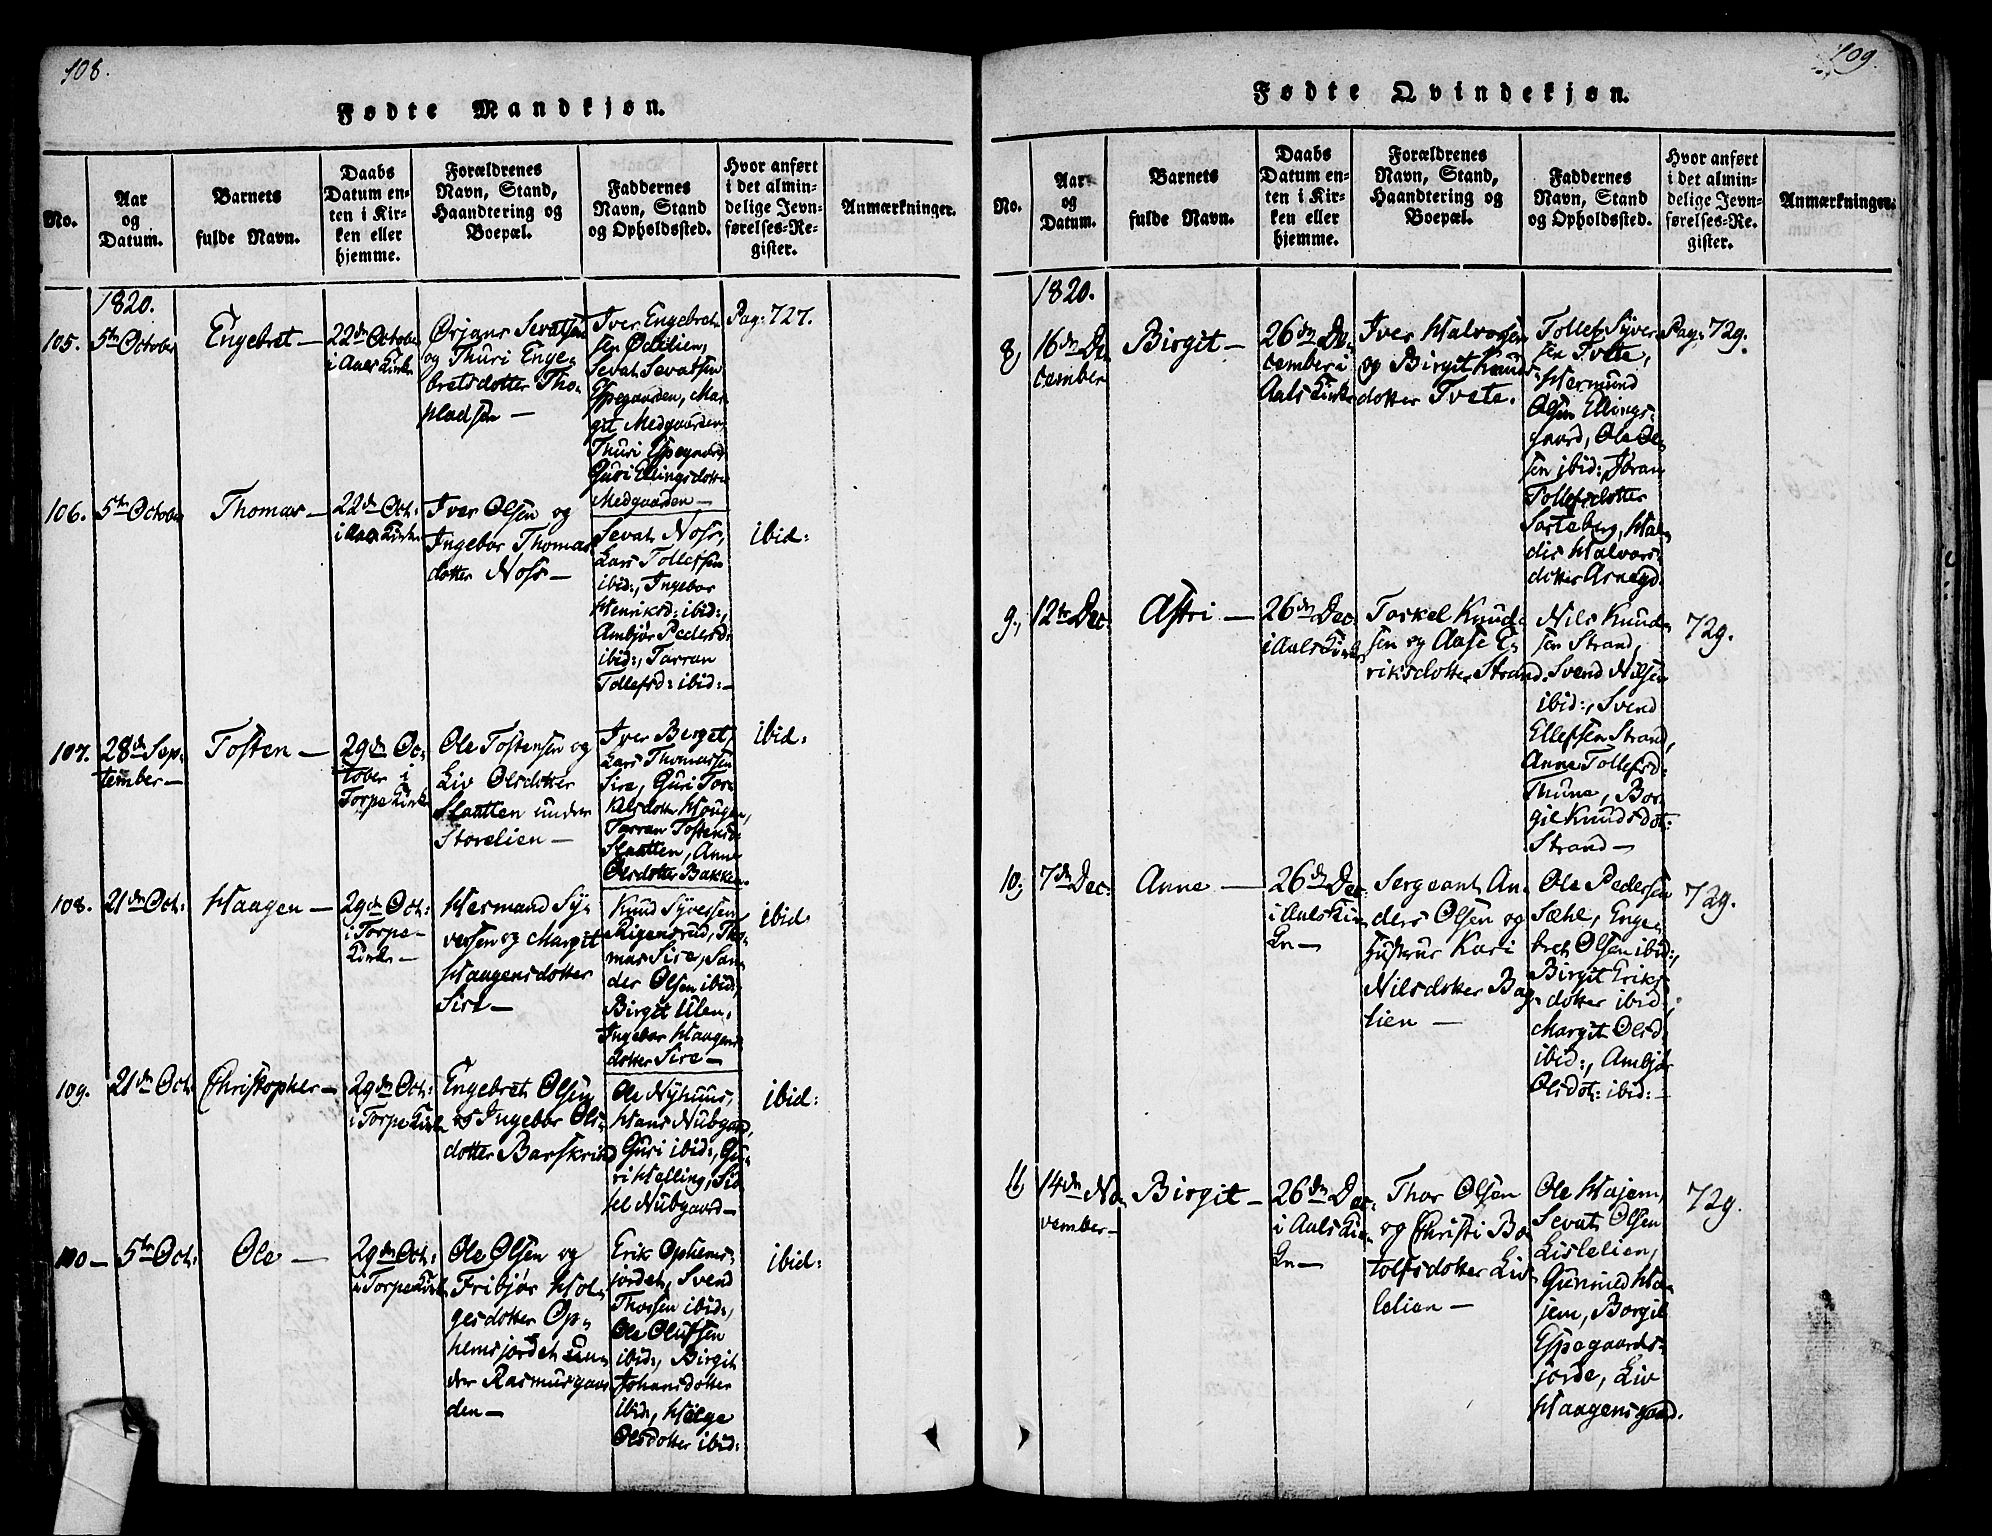 108.
Fødte Mandkjøn.
No.
Aar
og
Datum.
Barnets
fulde Navn.
Daabs
Datum en-
ten i Kir-
ken eller
hjemme.
Forældrenes
Navn, Stand,
Haandtering og
Boepæl.
Faddernes
Navn, Stand
og Opholdssted.
Hvor anført
i det almin-
delige Jevn-
førelses-Re-
gister.
Anmærkninger.
1820.
105.
5te October
Engebret —
22de October
i Aals Kirke
Ørjans Sevatsen
og Thuri Enge-
bretsdotter Tho-
pladsen —
Iver Engebret-
sen Ødelien,
Sevat Sevatsen
Espegaarden, Mar-
git Medgaarden,
Thuri Espegaard,
Guri Ellingsdotter
Medgaarden —
Pag: 727.
106.
5te October
Thomas —
22de Oct:
i Aals Kirke
Iver Olsen og
Ingebor Thomas-
dotter Noss —
Sevat Noss,
Lars Tollefsen
ibid:, Ingebor
Henriksd: ibid:,
Ambjør Pedersd:
ibid:, Tarran
Tollefsd: ibid: —
ibid:
107.
28de Sep-
tember —
Tosten —
29de Oc-
tober i
Torpe Kirke
Ole Tostensen og
Liv Olsdotter
Slaatten under
Storelien —
Iver Berget,
Lars Thomassen
Sire, Guri Tor-
kelsdotter Hougen,
Tarran Tostensd:
Slaatten, Anne
Olsdotter Bakken.
ibid:
108.
21de Oct:
Haagen —
29de Oct:
i Torpe-
Kirke —
Hermand Sy-
versen og Margit
Haagensdotter
Sire —
Knud Syversen
Rigensrud, Tho-
mas Sire, San-
der Olsen ibid:,
Birgit Ulen,
Ingebor Haagens-
dotter Sire —
ibid:
109.
21de Oct
Christopher —
29de Oct:
i Torpe Kirke
Engebret Olsen
og Ingebor Ols-
dotter Barskrind
Ole Nyhuus,
Hans Nubgaard,
Guri ibid:, Gu-
ri Helling, Sid-
sel Nubgaard —
ibid:
110 —
5te Oct:
Ole —
29de Oct:
i Torpe Kirke
Ole Olsen og
Fribjør Hol-
gesdotter Op-
hemsjordet un-
der Rasmusgaar-
den —
Erik Ophems-
jordet, Svend
Thorsen ibid:,
Ole Olufsen
ibid:, Birgit
Johansdotter
ibid:, Helge
Olsdotter ibid:
ibid:
109.
Fødte Qvindekjøn.
No.
Aar
og
Datum.
Barnets
fulde Navn.
Daabs
Datum en-
ten i Kir-
ken eller
hjemme.
Forældrenes
Navn, Stand,
Haandtering og
Boepæl.
Faddernes
Navn, Stand
og Opholdssted.
Hvor anført
i det almin-
delige Jevn-
førelses-Re-
gister.
Anmærkninger.
1820.
8,
16de De-
cember
Birgit —
26de De-
cember i
Aals Kirke
Iver Halvorsen
og Birgit Knuds-
dotter Tvete.
Tollef Syver-
sen Tvete,
Hermund
Olsen Ellings-
gaard, Ole Ol-
sen ibid:, Jøran
Tollefsdotter
Sorteberg, Hal-
dis Halvors-
dotter Arnegd.
Pag: 729.
9,
12te Dec:
Astri —
26de Dec
i Aals Kirke
Torkel Knud-
sen og Aase E-
riksdotter Strand.
Nils Knud-
sen Strand,
Svend Nilsen
ibid:, Svend
Ellefsen Strand,
Anne Tollefsd:
Thune, Bor-
gil Knudsdot:
Strand —
729.
10,
7de Dec:
Anne —
26de Dec:
i Aals Kir-
ke —
Sergeant An-
ders Olsen og
Hustrue Kari
Nilsdotter Bag-
lien —
Ole Pedersen
Sæhe, Enge-
bret Olsen ibid:,
Birgit Eriks-
dotter ibid:,
Margit Olsd:
ibid:, Ambjør
Olsdot: ibid: —
729.
11,
14de No-
vember —
Birgit —
26de Dec
i Aals Kir-
ke —
Thor Olsen
og Christi Bo-
tolfsdotter Lis-
lelien —
Ole Hajem,
Sevat Olsen
Lislelien,
Gunnild Ha-
jem, Borgil
Espegaards-
jorde, Liv
Haagensgaard.
729.